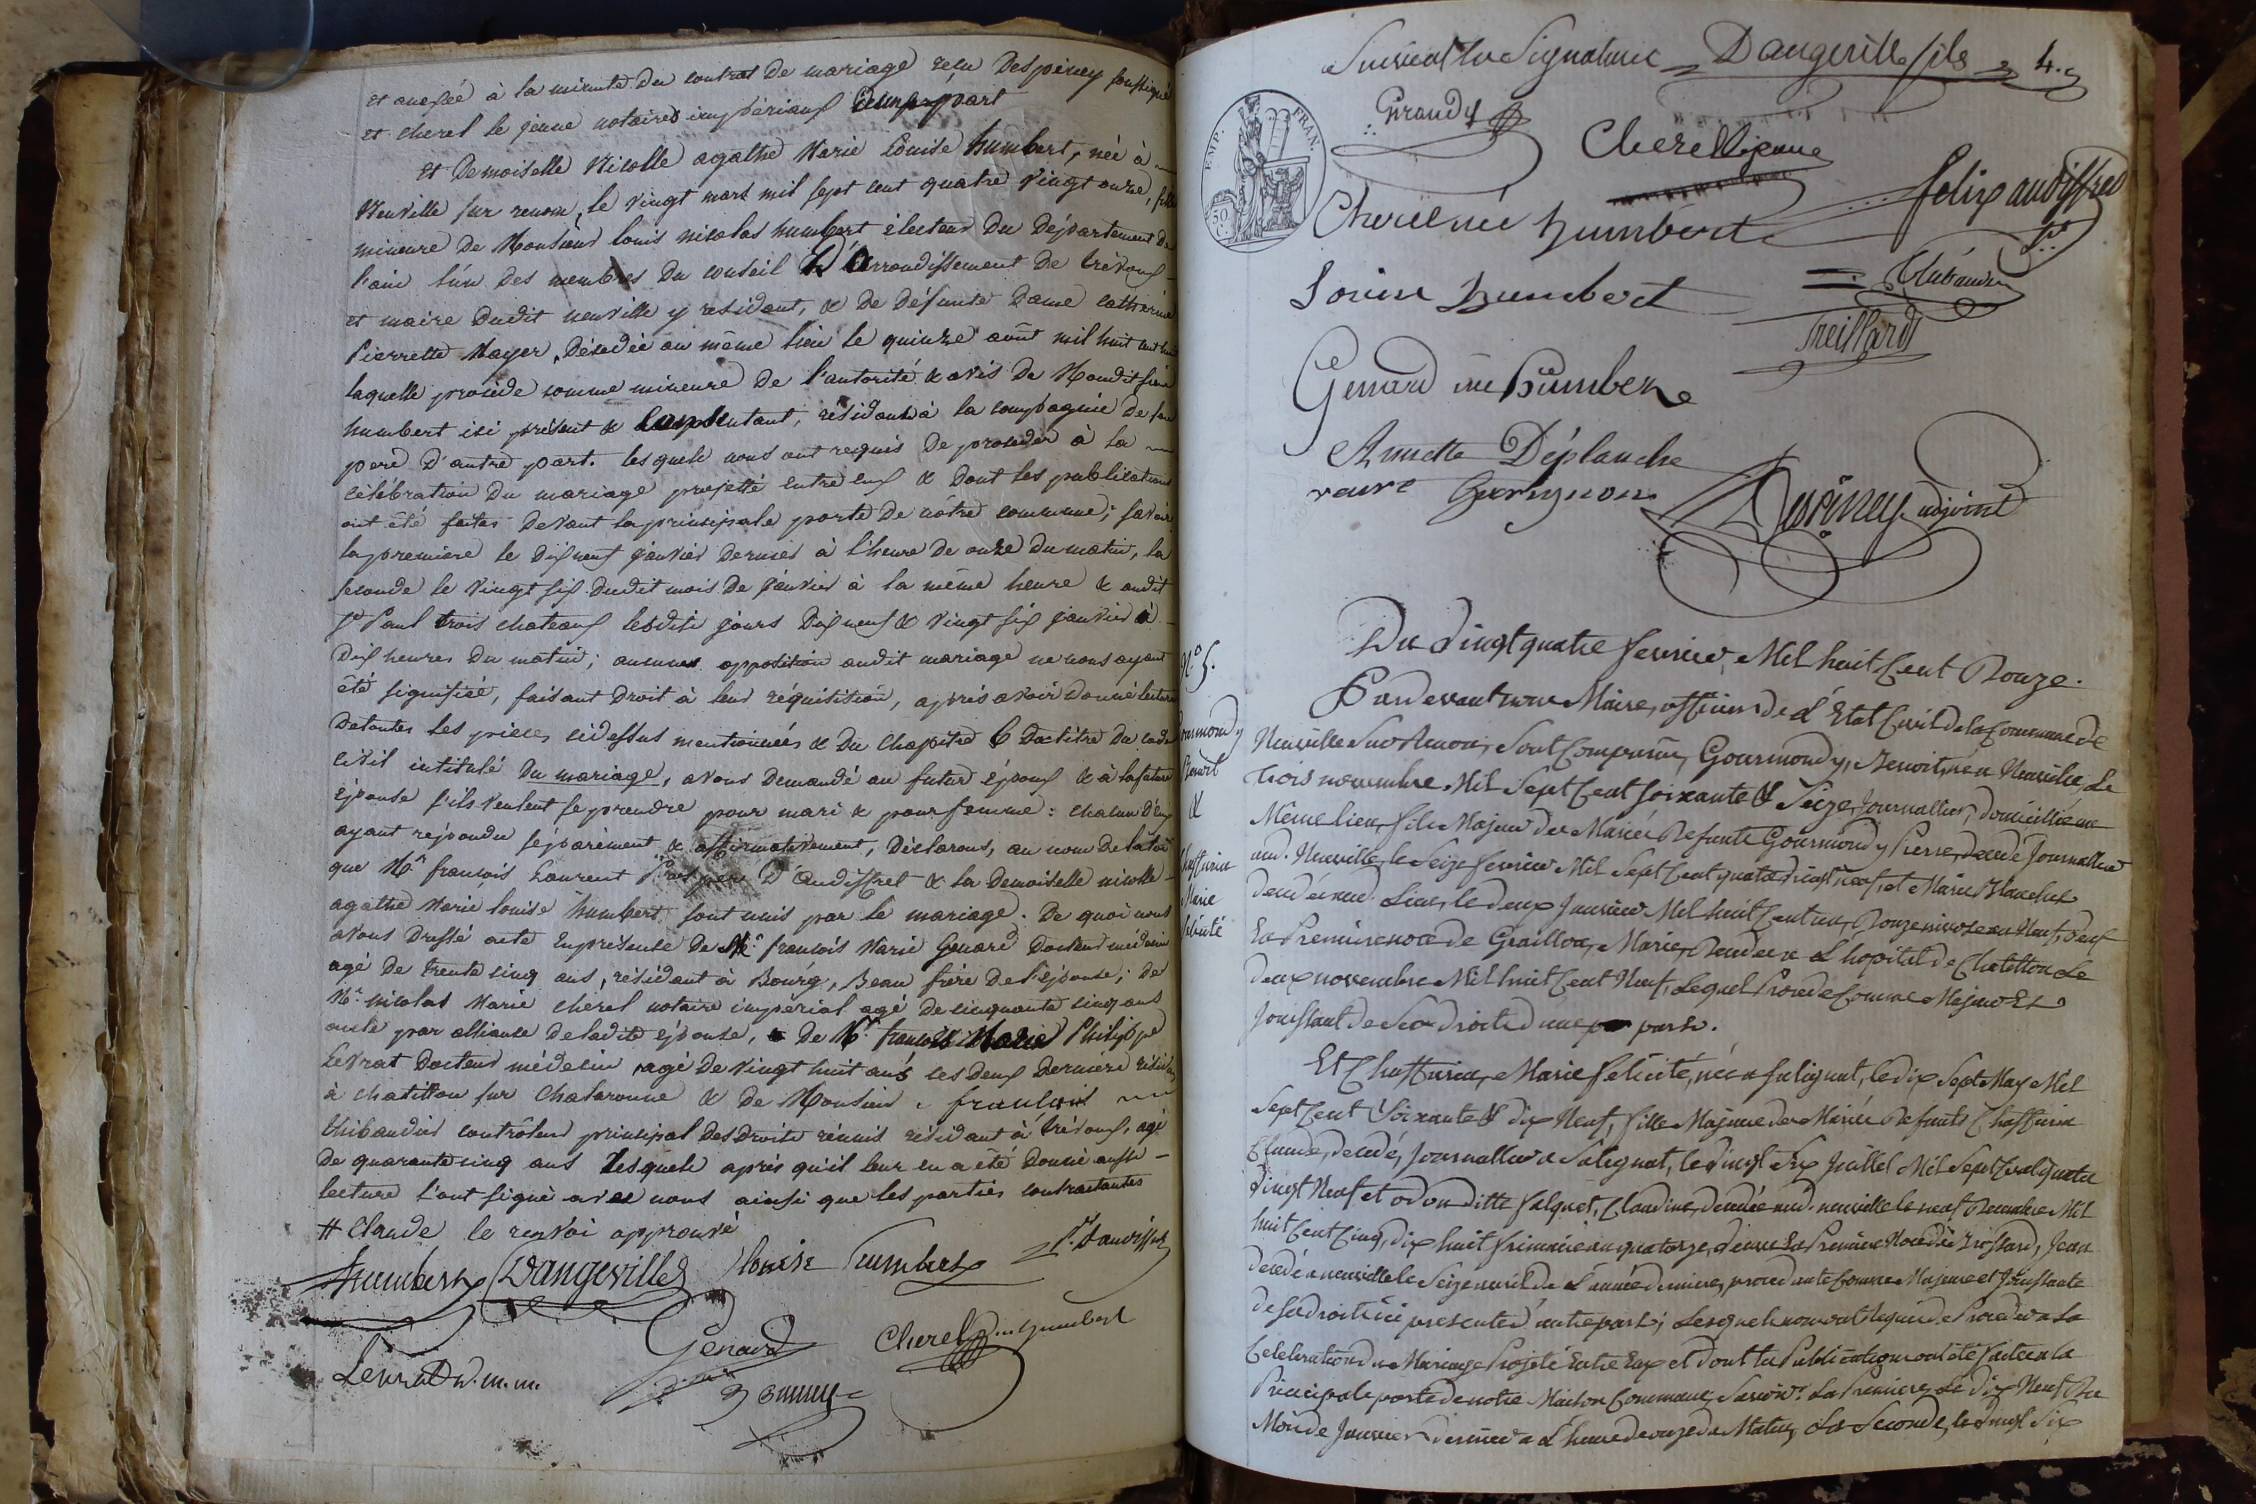 et anexée à la minute du contrat de mariage reçu Despiney soussigné
et cherel le jeune notaires impériaux d'une part
Et Demoiselle Nicolle agathe Marie Louise humbert, née à
Neuville sur renom, le vingt mars mil sept cent quatre vingt onze, fille
mineure de Monsieur louis nicolas humbert électeur du Département de
l'ain l'un des membres du conseil D'Arrondissement de trévoux
et maire dudit neuville y residant, & de défunte Dame catherine
Pierrette Mayer, Décedée au même lieu le quinze août mil huit cent
laquelle procède comme mineure de l'autorité & avis de Mondit sieur
humbert ici présent & Consentant, résidant à la compagnie de son
pere D'autre part. lesquels nous ont requis De proceder à la
célébration du mariage projetté entre eux & Dont les publications
ont été faites Devant la principale porte De nôtre commune; savoir
la premiere le Dix neuf janvier dernier à l'heure de onze du matin, la
seconde le vingt six dudit mois De janvier à la même heure & audit
St Paul trois chateaux lesdits jours Dix neuf & vingt six janvier à
Dix heures Du matin; aucunes opposition audit mariage ne nous ayant
été signifiée, faisant Droit à leur réquisition, après avoir Donné lecture
De toutes les pièces cidessus mentionnées & Du Chapitre 6 Du titre Du code
civil intitulé Du mariage, avons Demandé au futur époux & à la future
épouse s'ils veulent se prendre pour mari & pour femme: chacun D'eux
ayant répondu séparément & affirmativement, Déclarons, au nom De la loi
que Mr françois Laurent Prosper D'Audiffret & la Demoiselle nicolle
agathe Marie louise humbert sont unis par le mariage. De quoi nous
avons Dressé acte En présence De Mr françois Marie Genard Docteur médecin
agé De trente cinq ans, résidant à Bourg, Beau frère De l'épouse; de
Mr nicolas Marie chérel notaire impérial agé de cinquante cinq ans
oncle par alliance de ladite épouse, & De Mr françois Marie Philippe
Levrat Docteur médecin, agé De vingt huit ans les Deux Derniers résidans
à chatillon sur Chalaronne & De Monsieur françois
thibaudier contrôleur principal Des Droits réunis résidant à trévoux, agé
De quarante cinq ans Lesquels après qu'il leur en a été Donné aussi
lecture l'ont signé avec nous ainsi que les parties contractantes
# Claude le renvoi approuvé
humbert Dangeville louise humbert
Levrat D. m. m. Genard Cherel née humbert
Suivent les Signatures Dangeville fils 4.
EMP. FRAN.
50
Giraud
Cherel Lejeune
Cherel née humbert felix audiffred
Louise humbert Thibaudier
Treillard
Genard née humbert
Annette Déplanche
veuve
Despiney adjoint
N.o 5.
Gourmondy
Benoit
&
Chaffurin
Marie
félicité
Du vingt quatre fevrier Mil huit Cent Douze.
Pardevant nous Maire, officier de L'Etat Civil de la Commune de
Neuville Sur Renom, Sont Comparus, Gourmondy, Benoit, né a Neuville, Le
trois novembre Mil Sept Cent Soixante & Seize, Journallier, domicilié au
Même lieu, fils Majeur des Mariés Defunts Gourmondy Pierre, decedé Journallier
aud. Neuville, le Seize fevrier Mil Sept Cent quatre vingt neuf, et Marie Blanchet
decedée aud. Lieu, le deux Janvier Mil huit Cent un, Douze nivose an Neuf, Veuf
En Premiere noce de Graillon, Marie, Decedée a L'hopital de Chatillon Le
deux novembre Mil huit Cent Neuf, Lequel Procede Comme Majeur Et
Jouissant de Ses droits d'une part.
Et Chaffurin, Marie félicité, née a Saligniat, le dix Sept May Mil
Sept Cent Soixante & dix Neuf, fille Majeure des Mariés Defunts Chaffurin
Claude, decedé, Journallier a Salignat, le vingt Six Juillet Mil Sept Cent quatre
vingt Neuf et Claudine, decedée aud. neuville le neuf Decembre Mil
huit Cent Cinq, dix huit frimaire an quatorze, veuve En Premiere Noce de Brossard, Jean
decedé a neuville le Seize avril de L'année derniere, procedante Comme Majeure et Jouissante
de Ses droits ici presente d'autre part; Lesquels nous ont Requis de Proceder a La
Celebration du Mariage Projeté Entre Eux et dont les Publications ont été faites a la
Principale porte de notre Maison Commune, Savoir: La Premiere, Le dix Neuf Du
Mois de Janvier dernier a L'heure de onze du Matin, La Seconde, le vingt Six